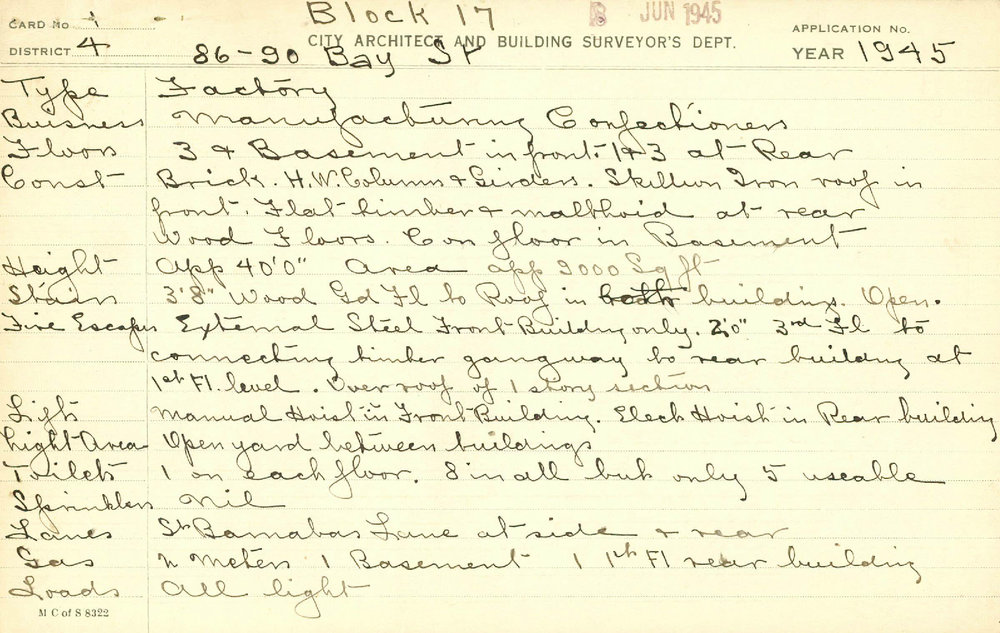 Block 17 8 JUN 1945
CARD No 1 CITY ARCHITECT AND BUILDING SURVEYOR'S DEPT. APPLICATION No.
DISTRICT 4 86-90 Bay St YEAR 1945
Type Factory
Buisness Manufacturing Confectioners
Floors 3 & Basement in front. 1&3 at Rear
Const Brick. H.W. Columns & Girders. Skillion Iron roof in
front. Flat timber & malthoid at rear
Wood Floors. Con floor in Basement
Height App 40'0" Area app 9000 Sq ft
Stairs 3'8" Wood Gd Fl to Roof in both buildings. Open.
Fire Escapes External Steel Front Building only. 2'0" 3rd Fl to
connecting timber gangway to rear building at
1st Fl. level. Over roof of 1 story section
Lifts Manual Hoist in Front Building. Elect Hoist in Rear building
Light Area Open yard between buildings
Toilets 1 on each floor. 8 in all but only 5 useable
Sprinklers Nil
Lanes St Barnabas Lane at side & rear
Gas 2 Meters 1 Basement 1 1st Fl rear building
Loads All light
M C of S 8322